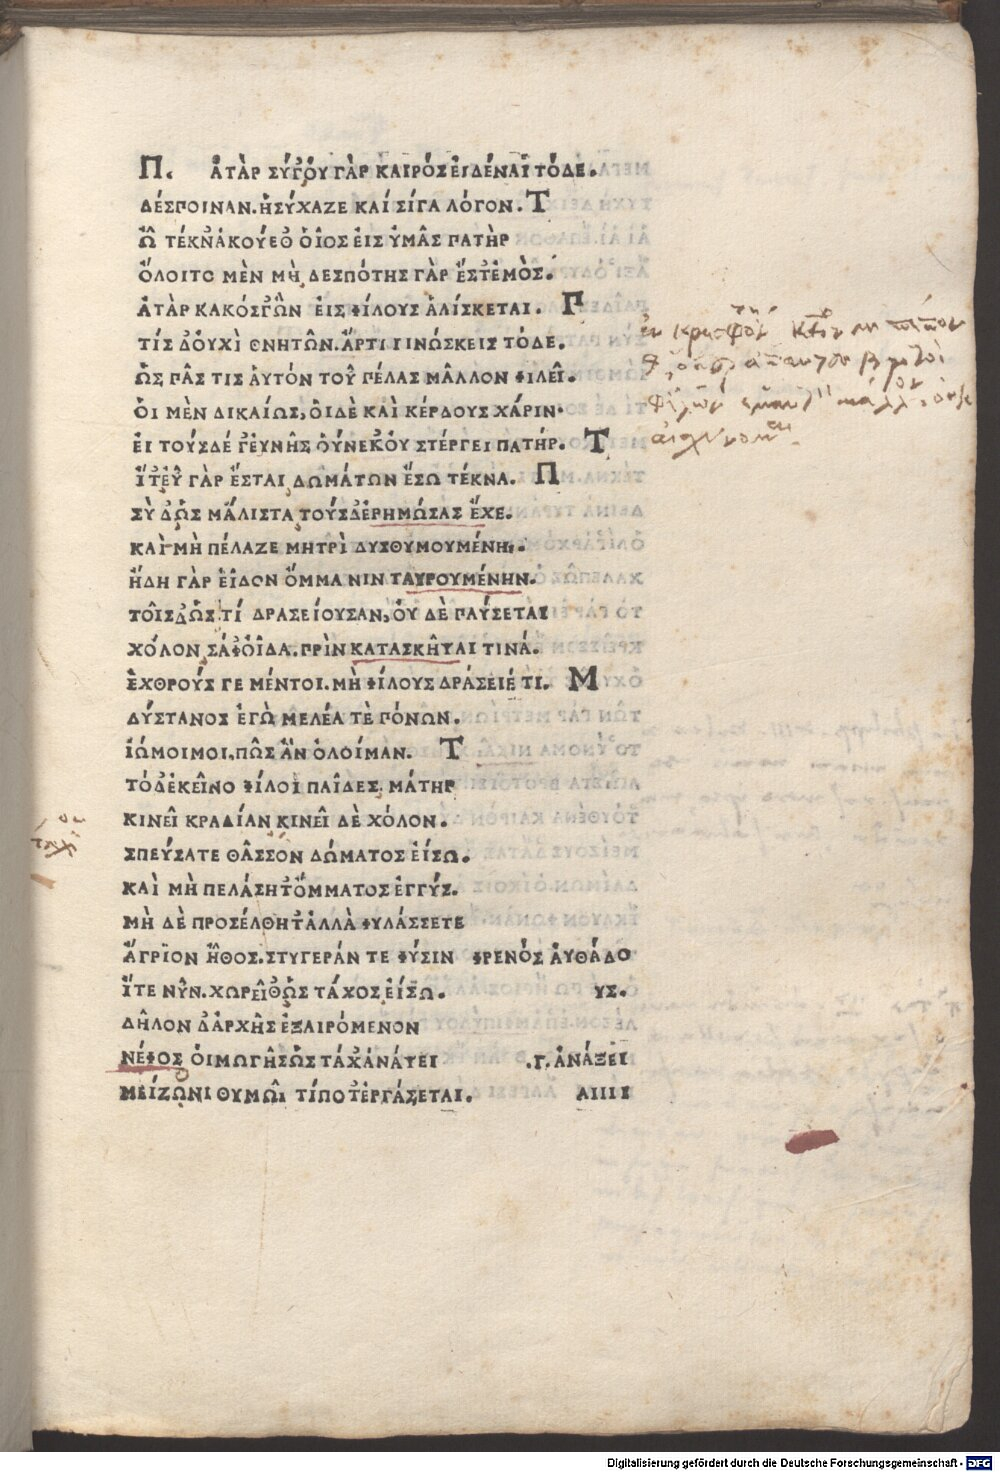 Π. ἈΤᾺΡ ΣΎΓ' ΟΥ ΓᾺΡ ΚΑΙΡῸΣ ΕἸΔΈΝΑΙ ΤΌΔΕ.
ΔΈΣΠΟΙΝΑΝ. ἩΣΎΧΑΖΕ ΚΑῚ ΣΊΓΑ ΛΌΓΟΝ. Τ
Ὦ ΤΈΚΝ' ἈΚΟΎΕΘ' ὉΙΟΣ ΕἸΣ ὙΜΑ͂Σ ΠΑΤῊΡ
ὌΛΟΙΤΟ ΜῈΝ ΜῊ, ΔΕΣΠΌΤΗΣ ΓᾺΡ ἝΣΤ' ἘΜῸΣ.
ἈΤᾺΡ ΚΑΚΌΣ Γ' ὪΝ ΕἸΣ ΦΊΛΟΥΣ ἉΛΊΣΚΕΤΑΙ. Γ
ΤΊΣ Δ' ΟΥ̓ΧῚ ΘΝΗΤΩ͂Ν. ἌΡΤΙ ΓΙΝΏΣΚΕΙΣ ΤΌΔΕ.
ὩΣ ΠΑ͂Σ ΤΙΣ ἉΥΤΌΝ ΤΟΥ͂ ΠΈΛΑΣ ΜΑ͂ΛΛΟΝ ΦΙΛΕΙ͂.
ὉΙ ΜῈΝ ΔΙΚΑΊΩΣ, ὉΙΔῈ ΚΑῚ ΚΈΡΔΟΥΣ ΧΆΡΙΝ·
ἘΙ ΤΟΎΣΔΕ Γ' ἘΥΝΗ͂Σ ὉΎΝΕΚ' ΟΥ ΣΤΈΡΓΕΙ ΠΑΤΉΡ. Τ
ἼΤ' ἘΥ͂ ΓᾺΡ ἜΣΤΑΙ ΔΩΜΆΤΩΝ ἜΣΩ ΤΈΚΝΑ. Π
ΣῪ Δ' ὩΣ ΜΆΛΙΣΤΑ ΤΟΎΣΔ' ἘΡΗΜΏΣΑΣ ἜΧΕ.
ΚΑῚ ΜῊ ΠΈΛΑΖΕ ΜΗΤΡῚ ΔΥΣΘΥΜΟΥΜΈΝΗΙ.
ἬΔΗ ΓᾺΡ ἘΙ͂ΔΟΝ ὌΜΜΑ ΝΙΝ ΤΑΥΡΟΥΜΈΝΗΝ.
ΤΟΙ͂ΣΔ' ὩΣ ΤΊ ΔΡΑΣΕΊΟΥΣΑΝ, ὈΥ ΔῈ ΠΑΎΣΕΤΑΙ
ΧΌΛΟΝ ΣΆΦ' ὈΙ͂ΔΑ. ΠΡῚΝ ΚΑΤΑΣΚΗ͂ΨΑΙ ΤΙΝΆ.
ἘΧΘΡΟΎΣ ΓΕ ΜΈΝΤΟΙ. ΜῊ ΦΊΛΟΥΣ ΔΡΆΣΕΙΕ ΤΙ. Μ
ΔΎΣΤΑΝΟΣ ἘΓῺ ΜΕΛΈΑ ΤῈ ΠΌΝΩΝ.
ἸΏΜΟΙΜΟΙ, ΠΩ͂Σ ἊΝ ὈΛΟΊΜΑΝ. Τ
ΤΌΔ' ἘΚΕΙ͂ΝΟ ΦΊΛΟΙ ΠΑΙ͂ΔΕΣ, ΜΆΤΗΡ
ΚΙΝΕΙ͂ ΚΡΑΔΊΑΝ ΚΙΝΕΙ͂ ΔῈ ΧΌΛΟΝ.
ΣΠΕΎΣΑΤΕ ΘΑ͂ΣΣΟΝ ΔΏΜΑΤΟΣ ἘΊΣΩ.
ΚΑῚ ΜῊ ΠΕΛΆΣΗΤ' ὌΜΜΑΤΟΣ ἘΓΓΎΣ.
ΜῊ ΔῈ ΠΡΟΣΈΛΘΗΤ' ἈΛΛᾺ ΦΥΛΆΣΣΕΤΕ
ἌΓΡΙΟΝ ἮΘΟΣ. ΣΤΥΓΕΡΆΝ ΤΕ ΦΎΣΙΝ ΦΡΕΝῸΣ ἈΥΘΆΔΟ
ἼΤΕ ΝΥ͂Ν. ΧΩΡΕΙ͂Θ' ὩΣ ΤΆΧΟΣ ἘΊΣΩ. ΥΣ.
ΔΗ͂ΛΟΝ Δ' ἈΡΧΗ͂Σ ἘΞΑΙΡΌΜΕΝΟΝ
ΝΈΦΟΣ ὈΙΜΩΓΗ͂Σ ὩΣ ΤΆΧ' ἈΝΆΨΕΙ .Γ. ἈΝΆΞΕΙ
ΜΕΊΖΩΝΙ ΘΥΜΩ͂Ι ΤΊ ΠΟΤ' ἘΡΓΆΣΕΤΑΙ. ΑΙΙΙΙ
Digitalisierung gefördert durch die Deutsche Forschungsgemeinschaft - DFG